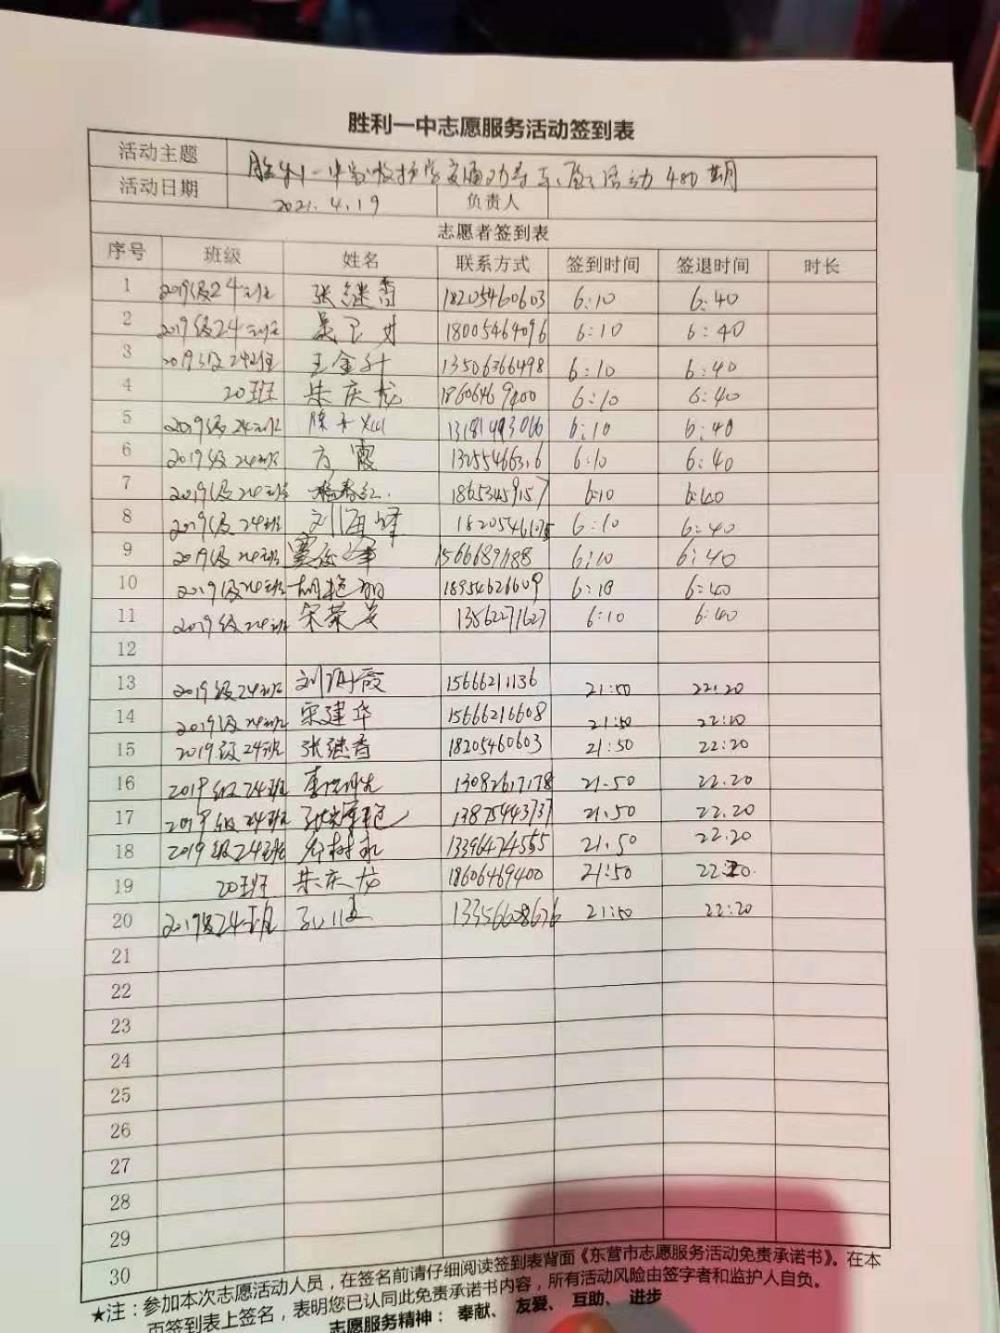 胜利一中志愿服务活动签到表
活动主题 胜利一中家校护学交通劝导志愿活动480期
活动日期 2021.4.19 负责人
志愿者签到表
序号 班级 姓名 联系方式 签到时间 签退时间 时长
1 2019级24班 张继香 18205460603 6:10 6:40
2 2019级24班 18005464096 6:10 6:40
3 2019级24班 王金叶 13506366498 6:10 6:40
4 20班 朱庆龙 18606469400 6:10 6:40
5 2019级24班 13181493066 6:10 6:40
6 2019级24班 方霞 6:10 6:40
7 2019级24班 6:10 6:40
8 2019级24班 刘海峰 6:10 6:40
9 2019级24班 6:10 6:40
10 2019级24班 胡艳丽 18954626609 6:10 6:40
11 2019级24班 宋荣安 13562271627 6:10 6:40
12
13 2019级24班 15666211136 21:50 22:20
14 2019级24班 宋建华 15666216608 21:50 22:20
15 2019级24班 张继香 18205460603 21:50 22:20
16 2019级24班 13082617178 21.50 22.20
17 2019级24班 13875443737 21.50 22.20
18 2019级24班 13396474555 21.50 22.20
19 20班 朱庆龙 18606469400 21:50 22:20
20 2019级24班 13356608676 21:50 22:20
21
22
23
24
25
26
27
28
29
30
★注：参加本次志愿活动人员，在签名前请仔细阅读签到表背面《东营市志愿服务活动免责承诺书》。在本
页签到表上签名，表明您已认同此免责承诺书内容，所有活动风险由签字者和监护人自负。
志愿服务精神：奉献、友爱、互助、进步